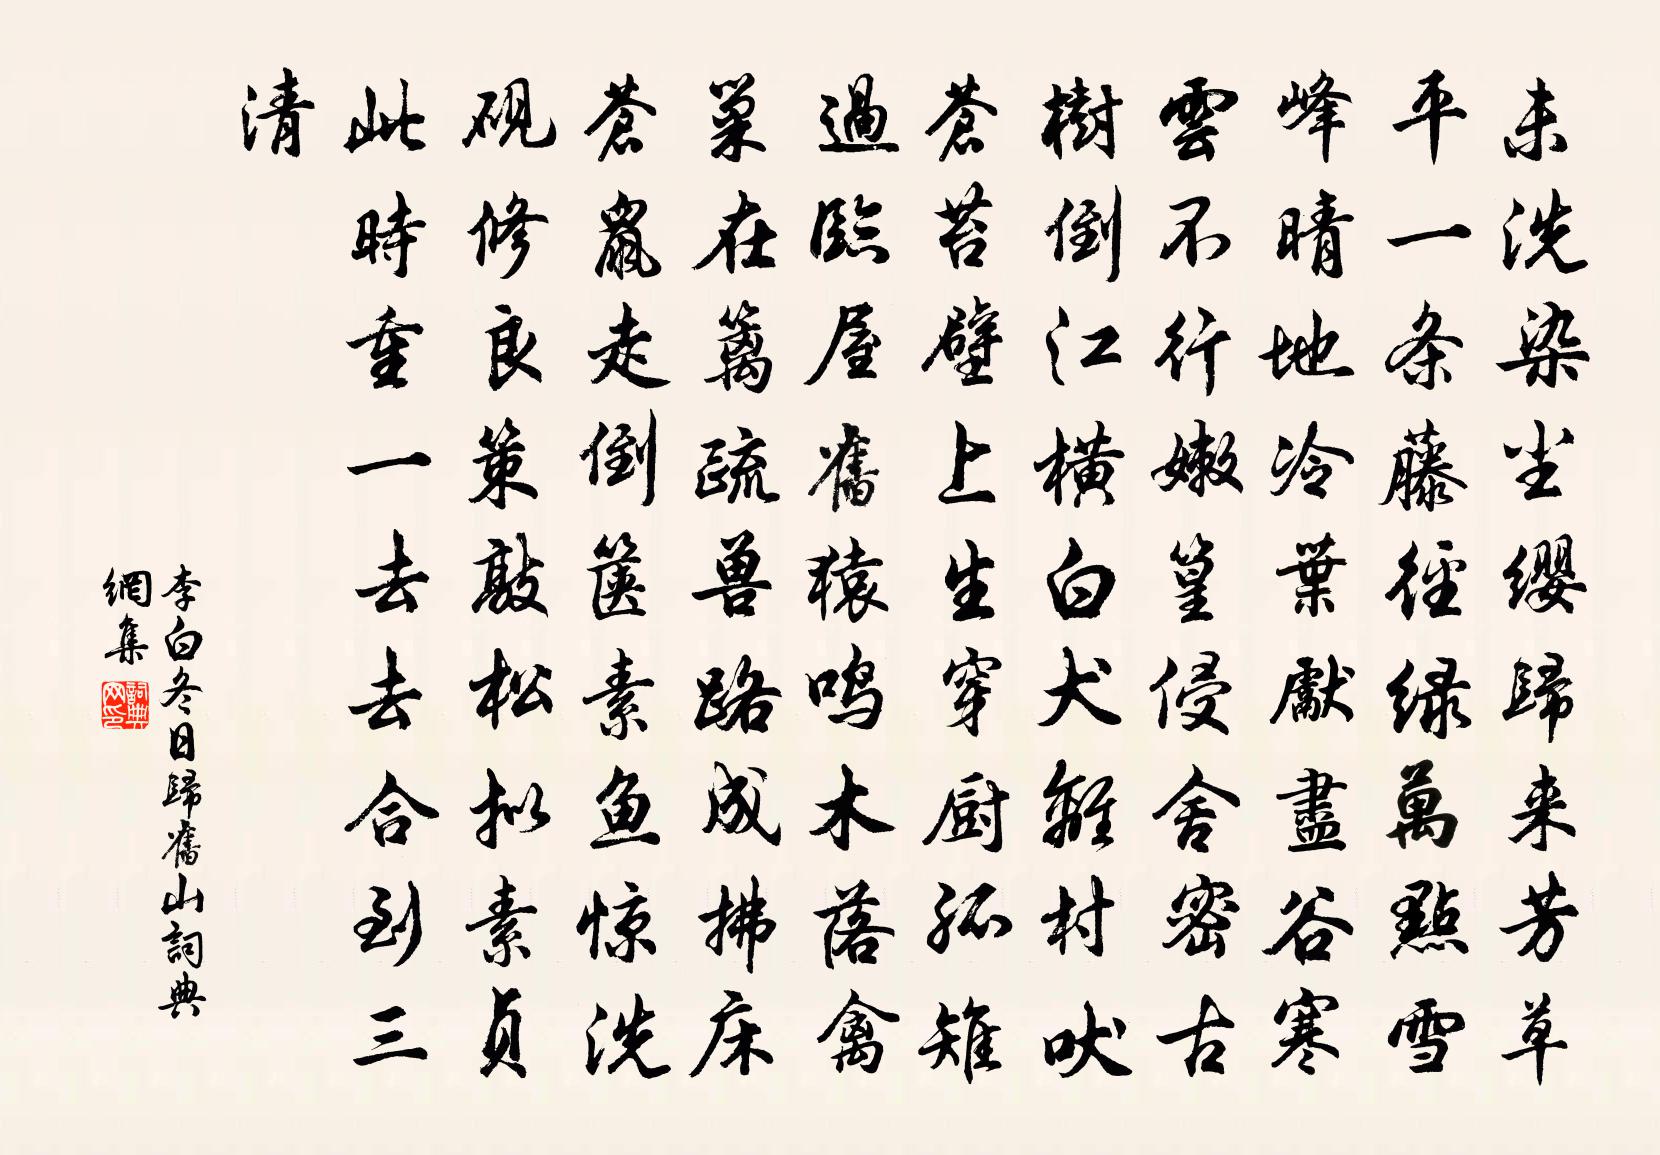 未洗染尘缨歸来芳草
平一条藤径绿萬點雪
峰晴地冷葉厭盡谷寒
雲不行嫩篁侵舍密古
樹倒江横白犬離村吠
蒼苔壁上生穿厨孤雉
過臨屋舊猿鸣木落禽
巢在篱疏兽路成拂床
蒼鼠走倒箧素鱼惊洗
砚修良策敲松拟素貞
此時重一去去合到三
清
李白冬日歸舊山詞典
網集
詞典网印